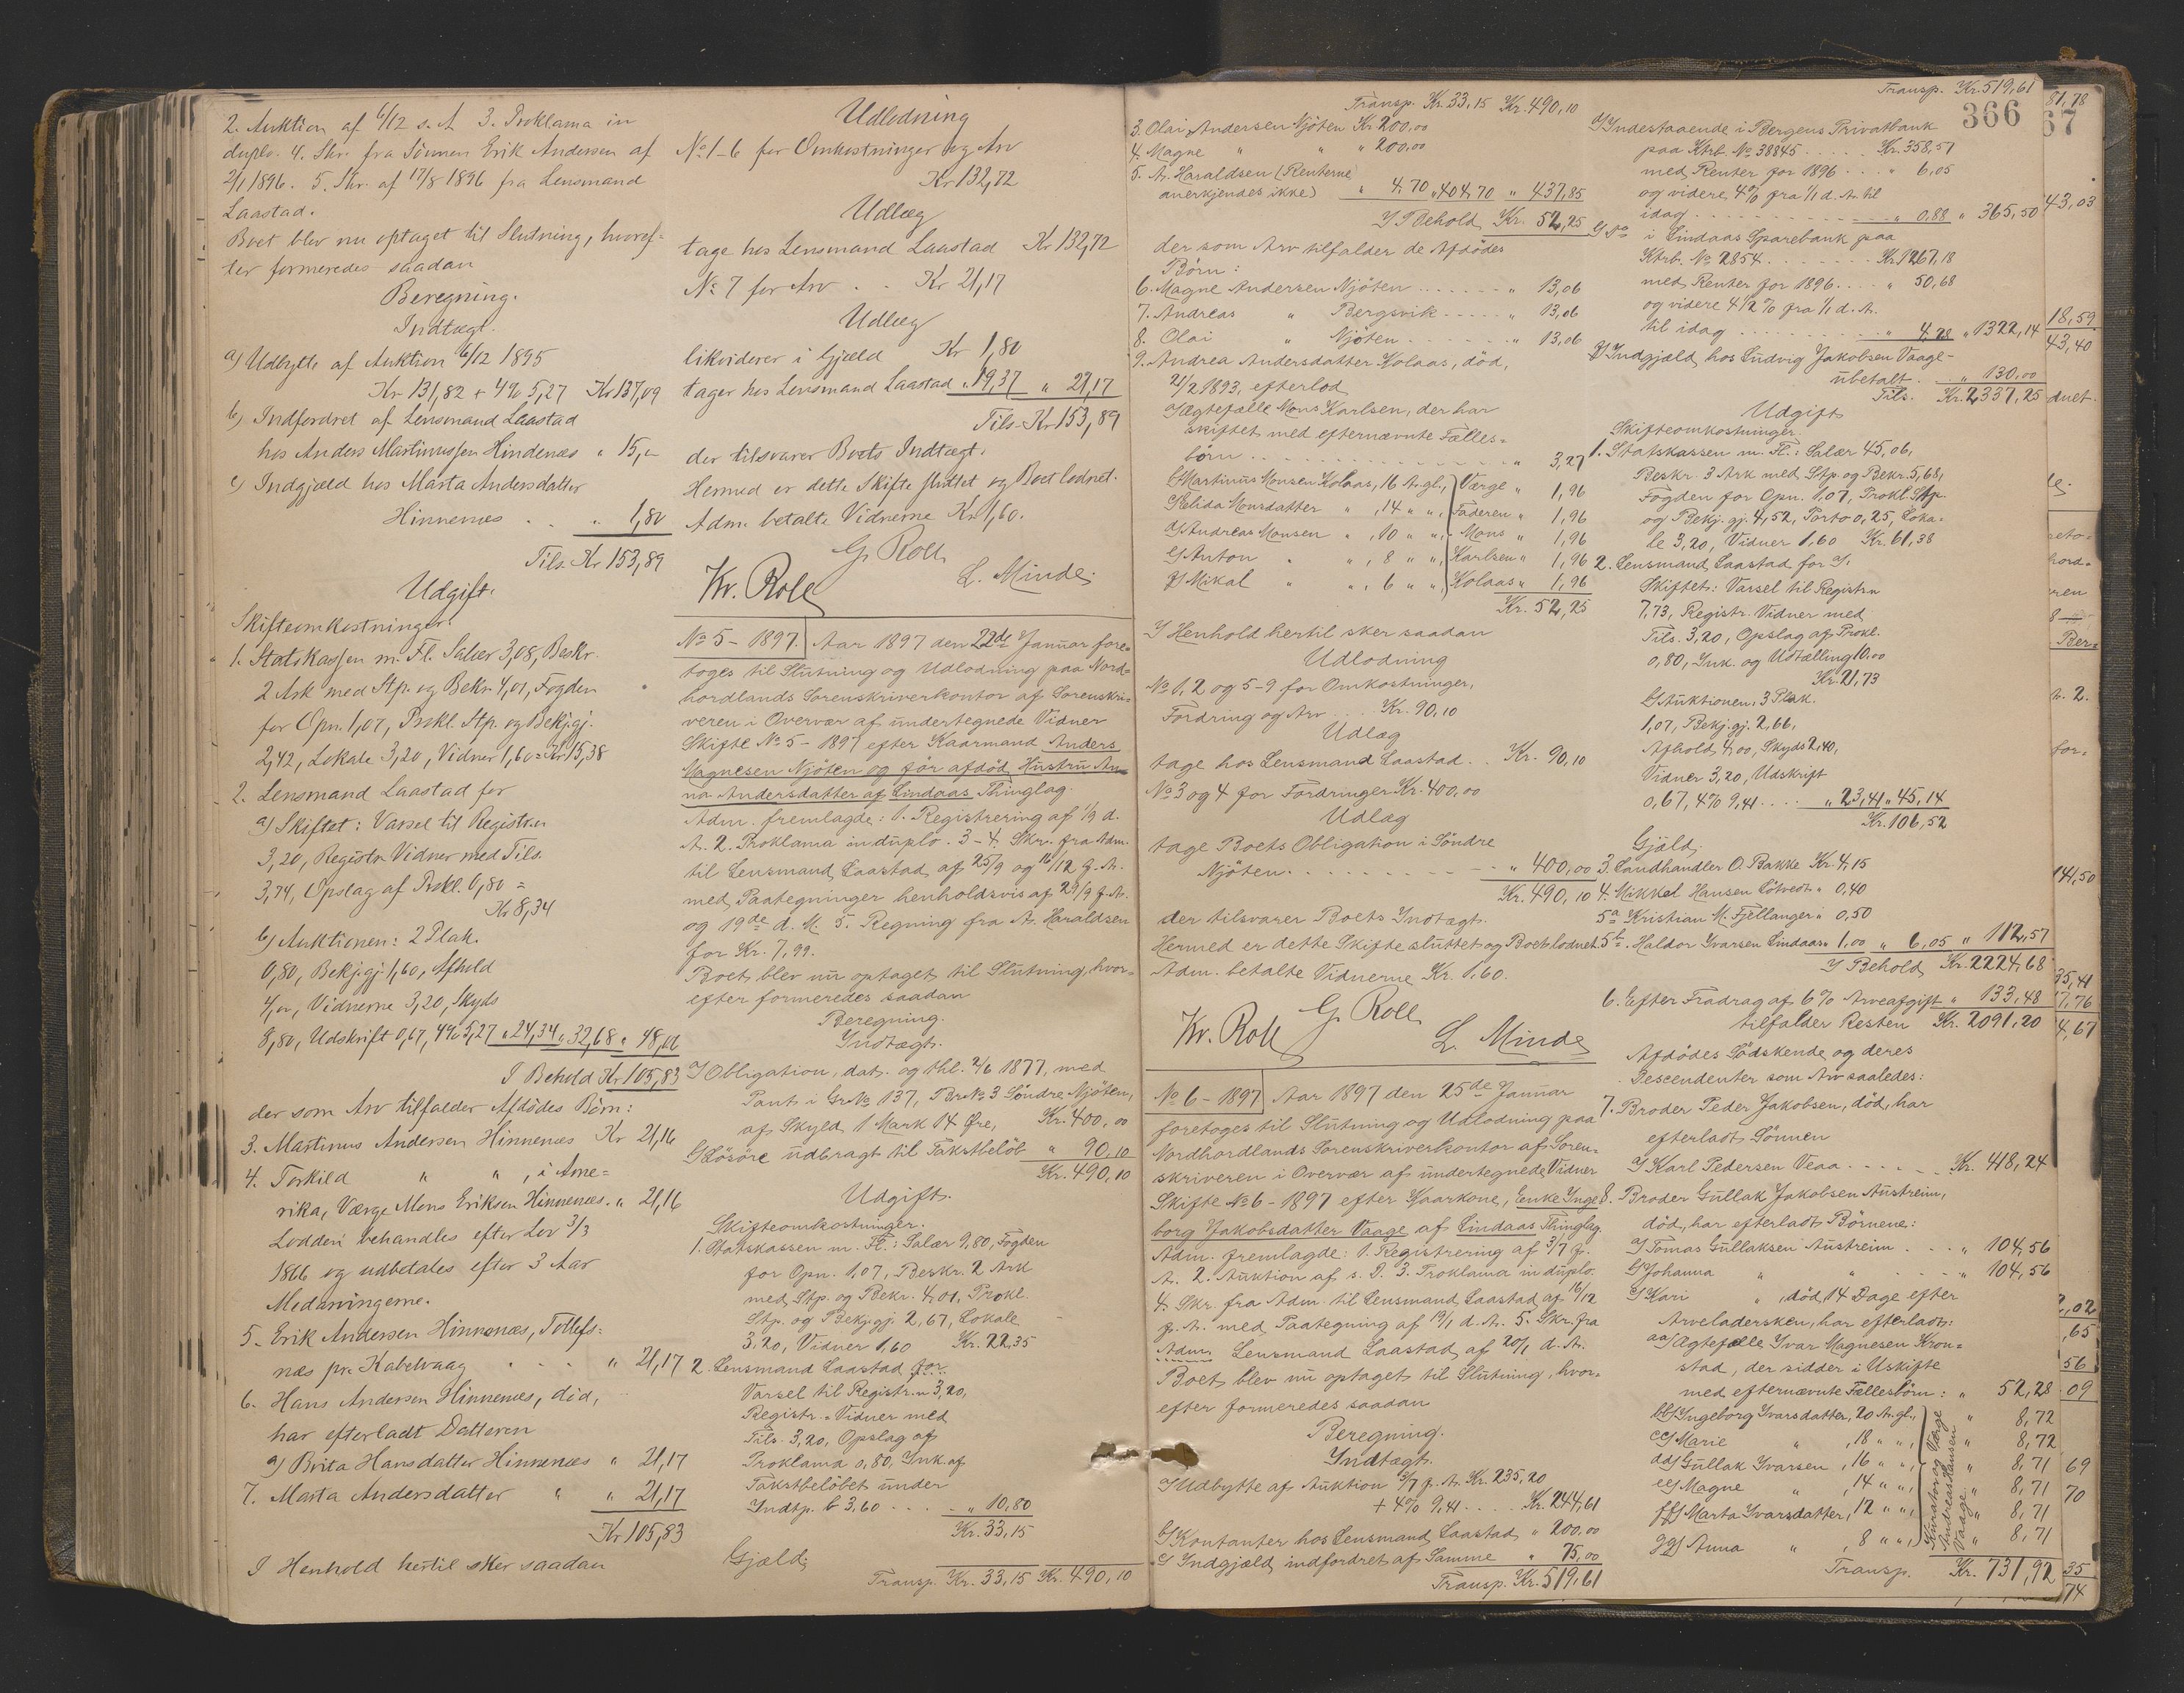 2. Auktion af 6/12 s. A 3. Proklama in
duplo. 4. Skr. fra Sönnen Erik Andersen af
2/1 1896. 5. Skr. af 17/8 1896 fra Lensmand
Laastad.
Boet blev nu optaget til Slutning, hvoref-
ter formeredes saadan
Beregning.
Indtægt.
a) Udbytte af Auktion 6/12 1895
Kr 131,82 + 4% 5,27 Kr 137,09
b) Indfordret af Lensmand Laastad
hos Anders Martinussen Hindenæs " 15,"
c) Indgjæld hos Marta Andersdatter
Hinnenæs . . " 1,80
Tils. Kr 153,89
Udgift.
Skifteomkostninger:
1. Statskassen m. Fl. Salær 3,08, Beskr.
2 Ark med Stp. og Bekr. 4,01, Fogden
for Opn. 1,07, Prokl. Stp. og Bekj.gj.
2,42, Lokale 3,20, Vidner 1,60 = Kr 15,38
2. Lensmand Laastad for
a) Skiftet: Varsel til Registr.n
3,20, Registr. Vidner med Tils.
3,74, Opslag af Prokl. 0,80 =
Kr 8,34
b) Auktionen: 2 Plak.
0,80, Bekj.gj 1,60, Afhold
4,00, Vidnerne 3,20, Skyds
8,80, Udskrift 0,67, 4% 5,27 " 24,34 " 32,68 " 48,06
I Behold Kr 105,83
der som Arv tilfalder Afdödes Börn:
3. Martinus Andersen Hinnenæs Kr 21,16
4. Torkild " " , i Ame-
rika, Værge Mons Eriksen Hinnenæs. " 21,16
Lodden behandles efter Lov 3/3
1866 og udbetales efter 3 Aar
Medaningerne.
5. Erik Andersen Hinnenæs, Tollefs-
næs pr. Kabelvaag . . . " 21,17
6. Hans Andersen Hinnenæs, död,
har efterladt Datteren
a) Brita Hansdatter Hinnenæs " 21,17
7. Marta Andersdatter " " 21,17
Kr 105,83
I Henhold hertil sker saadan
Udlodning
No 1-6 for Omkostninger og Arv
Kr 132,72
Udlæg
tage hos Lensmand Laastad Kr 132,72
No 7 for Arv . . Kr 21,17
Udlæg
likviderer i Gjæld Kr 1,80
tager hos Lensmand Laastad " 19,37 " 21,17
Tils. Kr 153,89
der tilsvarer Boets Indtægt.
Hermed er dette Skifte sluttet og Boet lodnet.
Adm. betalte Vidnerne Kr 1,60.
G. Roll
Kr. Roll
L. Minde.
No 5 - 1897. Aar 1897 den 22de Januar fore-
toges til Slutning og Udlodning paa Nord-
hordlands Sorenskriverkontor af Sorenskri-
veren i Overvær af undertegnede Vidner
Skifte No 5 - 1897 efter Kaarmand Anders
Magnesen Njöten og för afdöd Hustru An-
na Andersdatter af Lindaas Thinglag.
Adm. fremlagde: 1. Registrering af 1/9 d.
A. 2. Proklama in duplo. 3-4. Skr. fra Adm.
til Lensmand Laastad af 25/9 og 16/12 f. A.
med Paategninger henholdsvis af 29/9 f. A.
og 19de d. M. 5. Regning fra A. Haraldsen
for Kr. 7,99.
Boet blev nu optaget til Slutning, hvor-
efter formeredes saadan
Beregning.
Indtægt.
a) Obligation, dat. og thl. 2/6 1877, med
Pant i Gr.No 137, Br.No 3 Söndre Njöten,
af Skyld 1 Mark 14 Öre, Kr. 400,00
b) Lösöre udbragt til Takstbelöb " 90,10
Kr. 490,10
Udgift.
Skifteomkostninger.
1. Statskassen m. Fl.: Salær 9,80, Fogden
for Opn. 1,07, Beskr. 2 Ark
med Stp. og Bekr. 4,01, Prokl.
Stp. og Bekj.gj. 2,67, Lokale
3,20, Vidner 1,60 Kr. 22,35
2. Lensmand Laastad for
Varsel til Registr.n 3,20,
Registr. Vidner med
Tils. 3,20, Opslag af
Proklama 0,80, Ink. af
Takstbelöbet under
Indtg. b 3,60 . . . " 10,80
Kr. 33,15
Gjæld.
Transp. Kr. 33,15 Kr. 490,10
Transp. Kr. 33,15 Kr. 490,10
3. Olai Andersen Njöten Kr 200,00
4. Magne " " " 200,00
5. A. Haraldsen (Renterne
anerkjendes ikke) " 4,70 " 404,70 " 437,85
I Behold Kr. 52,25
der som Arv tilfalder de Afdödes
Börn:
6. Magne Andersen Njöten . . . . " 13,06
7. Andreas " Bergsvik . . . . " 13,06
8. Olai " Njöten . . . . " 13,06
9. Andrea Andersdatter Kolaas, död,
21/2 1893, efterlod
a) Ægtefælle Mons Karlsen, der har
skiftet med efternævnte Fælles-
börn . . . . " 3,27
b) Martinus Monsen Kolaas, 16 A. gl., Værge " 1,96
c) Selida Monsdatter " , 14 " " , Faderen " 1,96
d) Andreas Monsen " , 10 " " , Mons " 1,96
e) Anton " " , 8 " " , Karlsen " 1,96
f) Mikal " " , 6 " " , Kolaas " 1,96
Kr. 52,25
I Henhold hertil sker saadan
Udlodning
No 1, 2 og 5-9 for Omkostninger,
Fordring og Arv . . . Kr. 90,10
Udlæg
tage hos Lensmand Laastad . . Kr. 90,10
No 3 og 4 for Fordringer Kr. 400,00
Udlæg
tage Boets Obligation i Söndre
Njöten . . . . " 400,00
Kr. 490,10
der tilsvarer Boets Indtægt.
Hermed er dette Skifte sluttet og Boet lodnet
Adm. betalte Vidnerne Kr. 1,60.
G. Roll
Kr. Roll
L. Minde
No 6 - 1897 Aar 1897 den 25de Januar
foretoges til Slutning og Udlodning paa
Nordhordlands Sorenskriverkontor af Soren-
skriveren i Overvær af undertegnede Vidner
Skifte No 6 - 1897 efter Kaarkone, Enke Inge-
borg Jakobsdatter Vaage af Lindaas Thinglag
Adm. fremlagde: 1. Registrering af 3/7 f.
A. 2. Auktion af s. D. 3. Proklama in duplo.
4. Skr. fra Adm. til Lensmand Laastad af 16/12
f. A. med Paategning af 19/1 d. A. 5. Skr. fra
Adm. Lensmand Laastad af 20/1 d. A.
Boet blev nu optaget til Slutning, hvor-
efter formeredes saadan
Beregning.
Indtægt.
a) Udbytte af Auktion 3/7 f. A. Kr. 235,20
+ 4% 9,41 . . . Kr. 244,61
b) Kontanter hos Lensmand Laastad " 200,00
c) Indgjæld indfordret af Samme " 75,00
Transp. Kr. 519,61
Transp. Kr. 519,61
366
d) Indestaaende i Bergens Privatbank
paa Ktrb. No 38845 . . . Kr. 358,57
med Renter for 1896 . . . " 6,05
og videre 4% fra 1/1 d. A. til
idag . . . . " 0,88 " 365,50
e) Do i Lindaas Sparebank paa
Ktrb. No 2854 . . . . Kr. 1267,18
med Renter for 1896 . . . " 50,68
og videre 4 1/2 % fra 1/1 d. A.
til idag . . . . " 4,28 " 1322,14
f) Indgjæld hos Ludvig Jakobsen Vaage-
ubetalt . . " 130,00
Tils. Kr. 2337,25
Udgift
Skifteomkostninger.
1. Statskassen m. Fl.: Salær 45,06,
Beskr. 3 Ark med Stp. og Bekr. 5,68,
Fogden for Opn. 1,07, Prokl. Stp.
og Bekj.gj. 4,52, Porto 0,25, Loka-
le 3,20, Vidner 1,60 Kr. 61,38
2. Lensmand Laastad for a)
Skiftet: Varsel til Registr.n
7,73, Registr. Vidner med
Tils. 3,20, Opslag af Prokl.
0,80, Ink. og Udtælling 10.00
Kr. 21,73
b) Auktionen, 3 Plak.
1,07, Bekj.gj. 2,66,
Afhold 4,00, Skyds 2,40,
Vidner 3,20, Udskrift
0,67, 4% 9,41 . . . " 23,41 " 45,14
Kr. 106,52
Gjæld.
3. Landhandler O. Bakke Kr. 4,15
4. Mikkel Hansen Lötvedt " 0,40
5a Kristian M. Fjellanger " 0,50
5b. Haldor Ivarsen Lindaas " 1,00 " 6,05 " 112,57
I Behold Kr. 2224,68
6. Efter Fradrag af 6% Arveafgift " 133,48
tilfalder Resten Kr. 2091,20
Afdödes Södskende og deres
Descendenter som Arv saaledes:
7. Broder Peder Jakobsen, död, har
efterladt Sönnen
a) Karl Pedersen Veaa . . . . Kr. 418,24
8. Broder Gullak Jakobsen Austreim,
död, har efterladt Börnene:
a) Tomas Gullaksen Austreim . . . " 104,56
b) Johanna " " . . . " 104,56
c) Kari " , död, 14 Dage efter
Arveladersken, har efterladt:
aa) Ægtefælle Ivar Magnesen Kron-
stad, der sidder i Uskifte
med efternævnte Fællesbörn: " 52,28
bb) Ingeborg Ivarsdatter, 20 A. gl., " 8,72
cc) Marie " , 18 " " , " 8,72
dd) Gullak Ivarsen , 16 " " , " 8,71
ee) Magne " , 14 " " , " 8,71
ff) Marta Ivarsdatter, 12 " " , " 8,71
gg) Anna " , 8 " " , " 8,71
Kurator og Værge
Andreas Hansen
Vaage
Transp. Kr. 731,92
81,78
67
43,03
18,59
43,40
duet.
Ber-
for-
141,50
35,41
17,76
4,67
2,02
,65
56
09
69
70
35
74